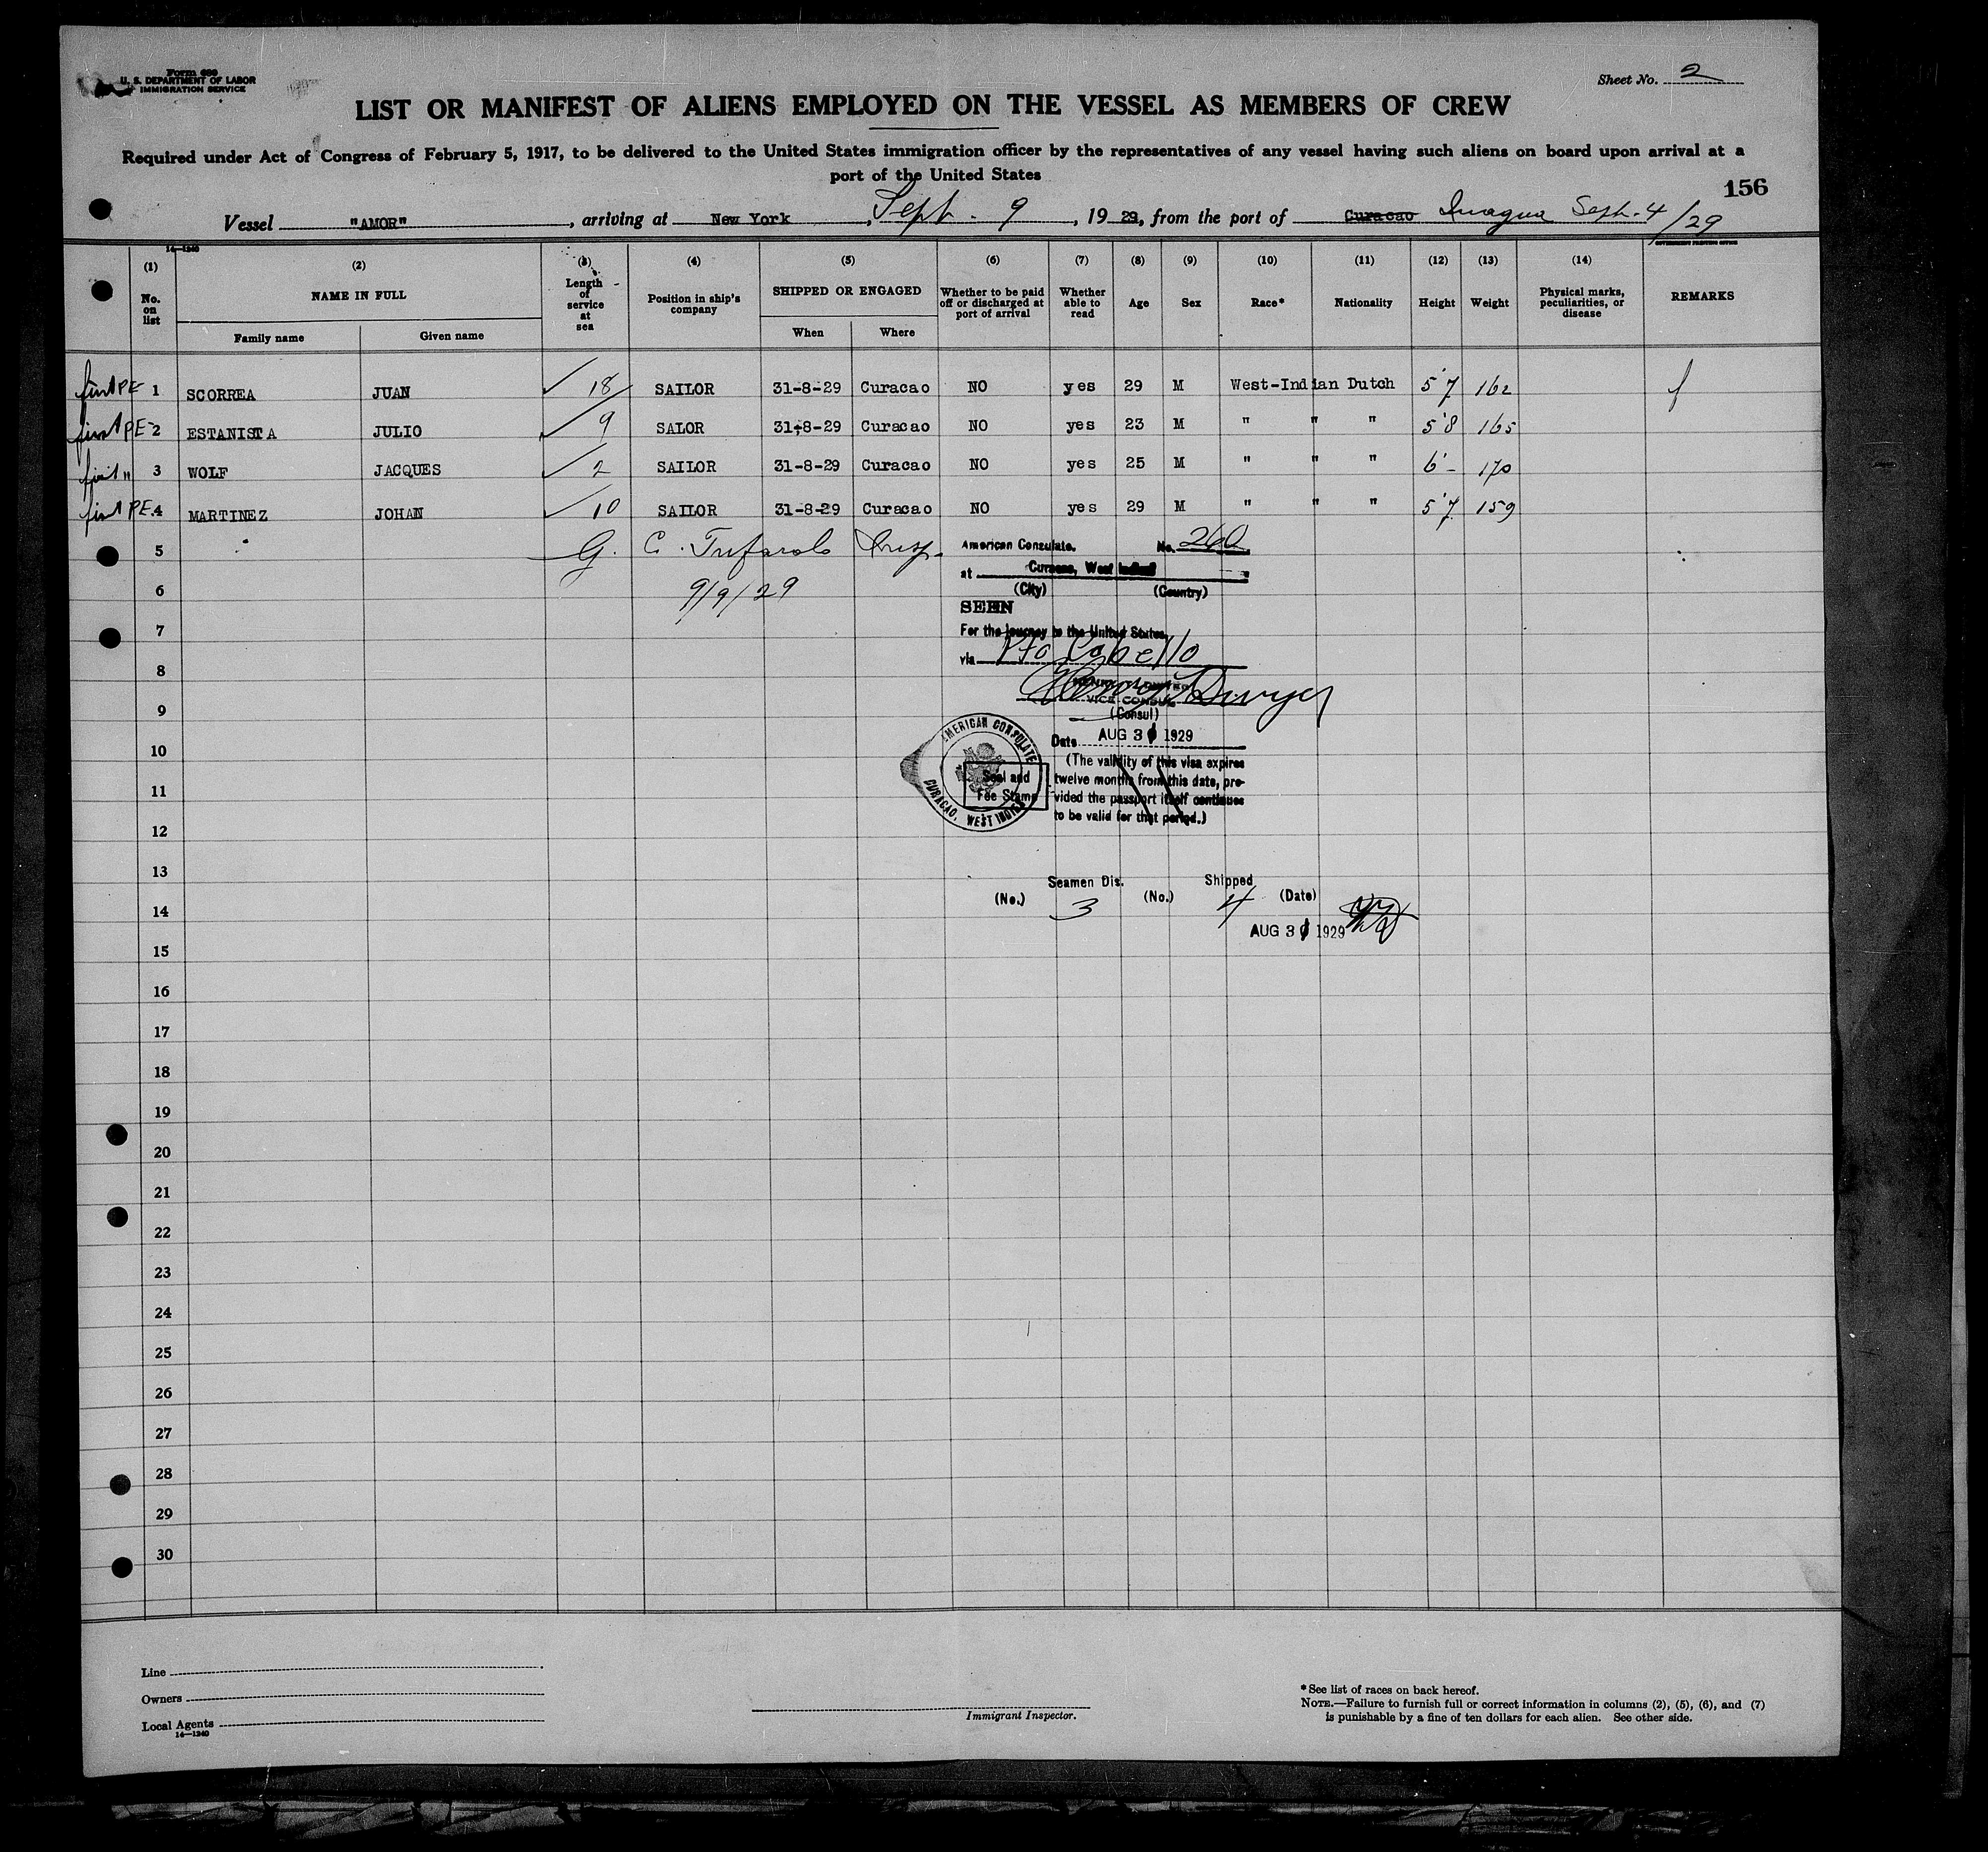 Form 689
U. S. DEPARTMENT OF LABOR
IMMIGRATION SERVICE
Sheet No. 2
LIST OR MANIFEST OF ALIENS EMPLOYED ON THE VESSEL AS MEMBERS OF CREW
Required under Act of Congress of February 5, 1917, to be delivered to the United States immigration officer by the representatives of any vessel having such aliens on board upon arrival at a
port of the United States
156
Vessel "AMOR", arriving at New York, Sept. 9, 19 29, from the port of Curacao Inagua Sept. 4/29
14—1240
GOVERNMENT PRINTING OFFICE
(1) (2) (3) (4) (5) (6) (7) (8) (9) (10) (11) (12) (13) (14)
No. on list NAME IN FULL Length of service at sea Position in ship's company SHIPPED OR ENGAGED Whether to be paid off or discharged at port of arrival Whether able to read Age Sex Race* Nationality Height Weight Physical marks, peculiarities, or disease REMARKS
Family name Given name When Where
first PE 1 SCORREA JUAN 18 SAILOR 31-8-29 Curacao NO yes 29 M West-Indian Dutch 5'7 162
first PE 2 ESTANISTA JULIO 9 SALOR 31-8-29 Curacao NO yes 23 M " " " 5'8 165
first " 3 WOLF JACQUES 2 SAILOR 31-8-29 Curacao NO yes 25 M " " " 6'- 170
first PE. 4 MARTINEZ JOHAN 10 SAILOR 31-8-29 Curacao NO yes 29 M " " " 5'7 159
5 G. C. Insp. American Consulate. No. 260
at Curacao, West Indies
6 9/9/29 (City) (Country)
SEEN
7 For the journey to the United States,
8 via Pto Cabello
Henry Dwyer
VICE CONSUL
9 (Consul)
10 Date AUG 31 1929
AMERICAN CONSULATE
CURACAO, WEST INDIES
Seal and
Fee Stamp
(The validity of this visa expires
11 twelve months from this date, pro-
vided the passport itself continues
12 to be valid for that period.)
13 Seamen Dis. Shipped
14 (No.) 3 (No.) 4 (Date)
AUG 31 1929
15
16
17
18
19
20
21
22
23
24
25
26
27
28
29
30
Line
Owners
Local Agents
14—1240
Immigrant Inspector.
*See list of races on back hereof.
NOTE.—Failure to furnish full or correct information in columns (2), (5), (6), and (7)
is punishable by a fine of ten dollars for each alien. See other side.